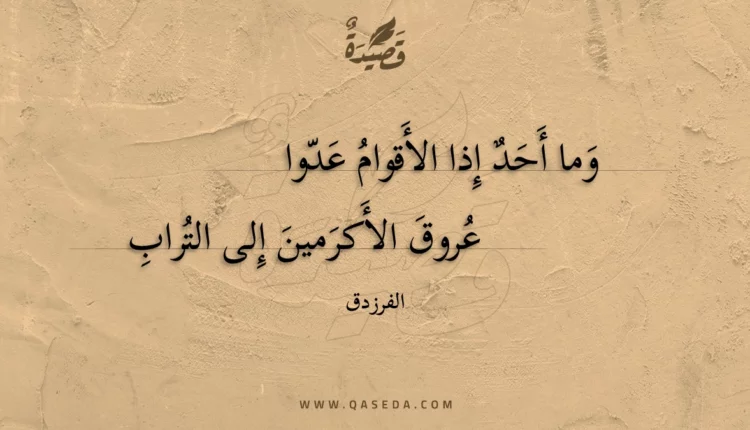 قَصِيدَةٌ
وَما أَحَدٌ إِذا الأَقوامُ عَدّوا
عُروقَ الأَكرَمينَ إِلى التُرابِ
الفرزدق
WWW.QASEDA.COM